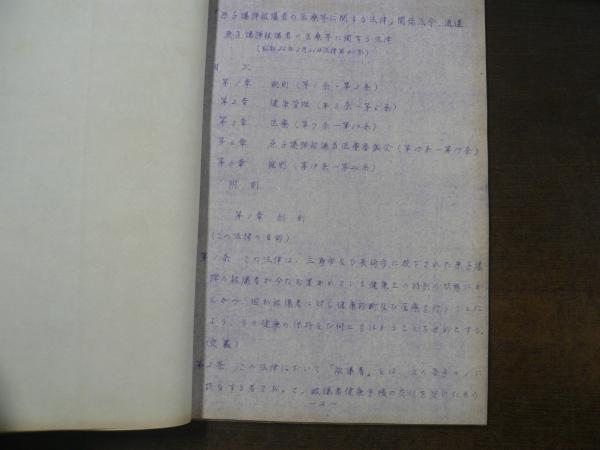 「原子爆弾被爆者の医療等に関する法律」関係法令、通達
原子爆弾被爆者の医療等に関する法律
(昭和32年3月31日法律第41号)
目 次
第1章 総則(第1条・第2条)
第2章 健康管理(第3条ー第6条)
第3章 医療(第7条ー第14条)
第4章 原子爆弾被爆者医療審議会(第15条ー第17条)
第5章 雑則(第18条ー第20条)
附 則
第1章 総 則
(この法律の目的)
第1条 この法律は、広島市及び長崎市に投下された原子爆
弾の被爆者が今なお置かれている健康上の特別の状態にか
んがみ、国が被爆者に対し健康診断及び医療を行うことに
より、その健康の保持及び向上をはかることを目的とする。
(定義)
第2条 この法律において「被爆者」とは、次の各号の1に
該当する者であって、被爆者健康手帳の交付を受けたもの